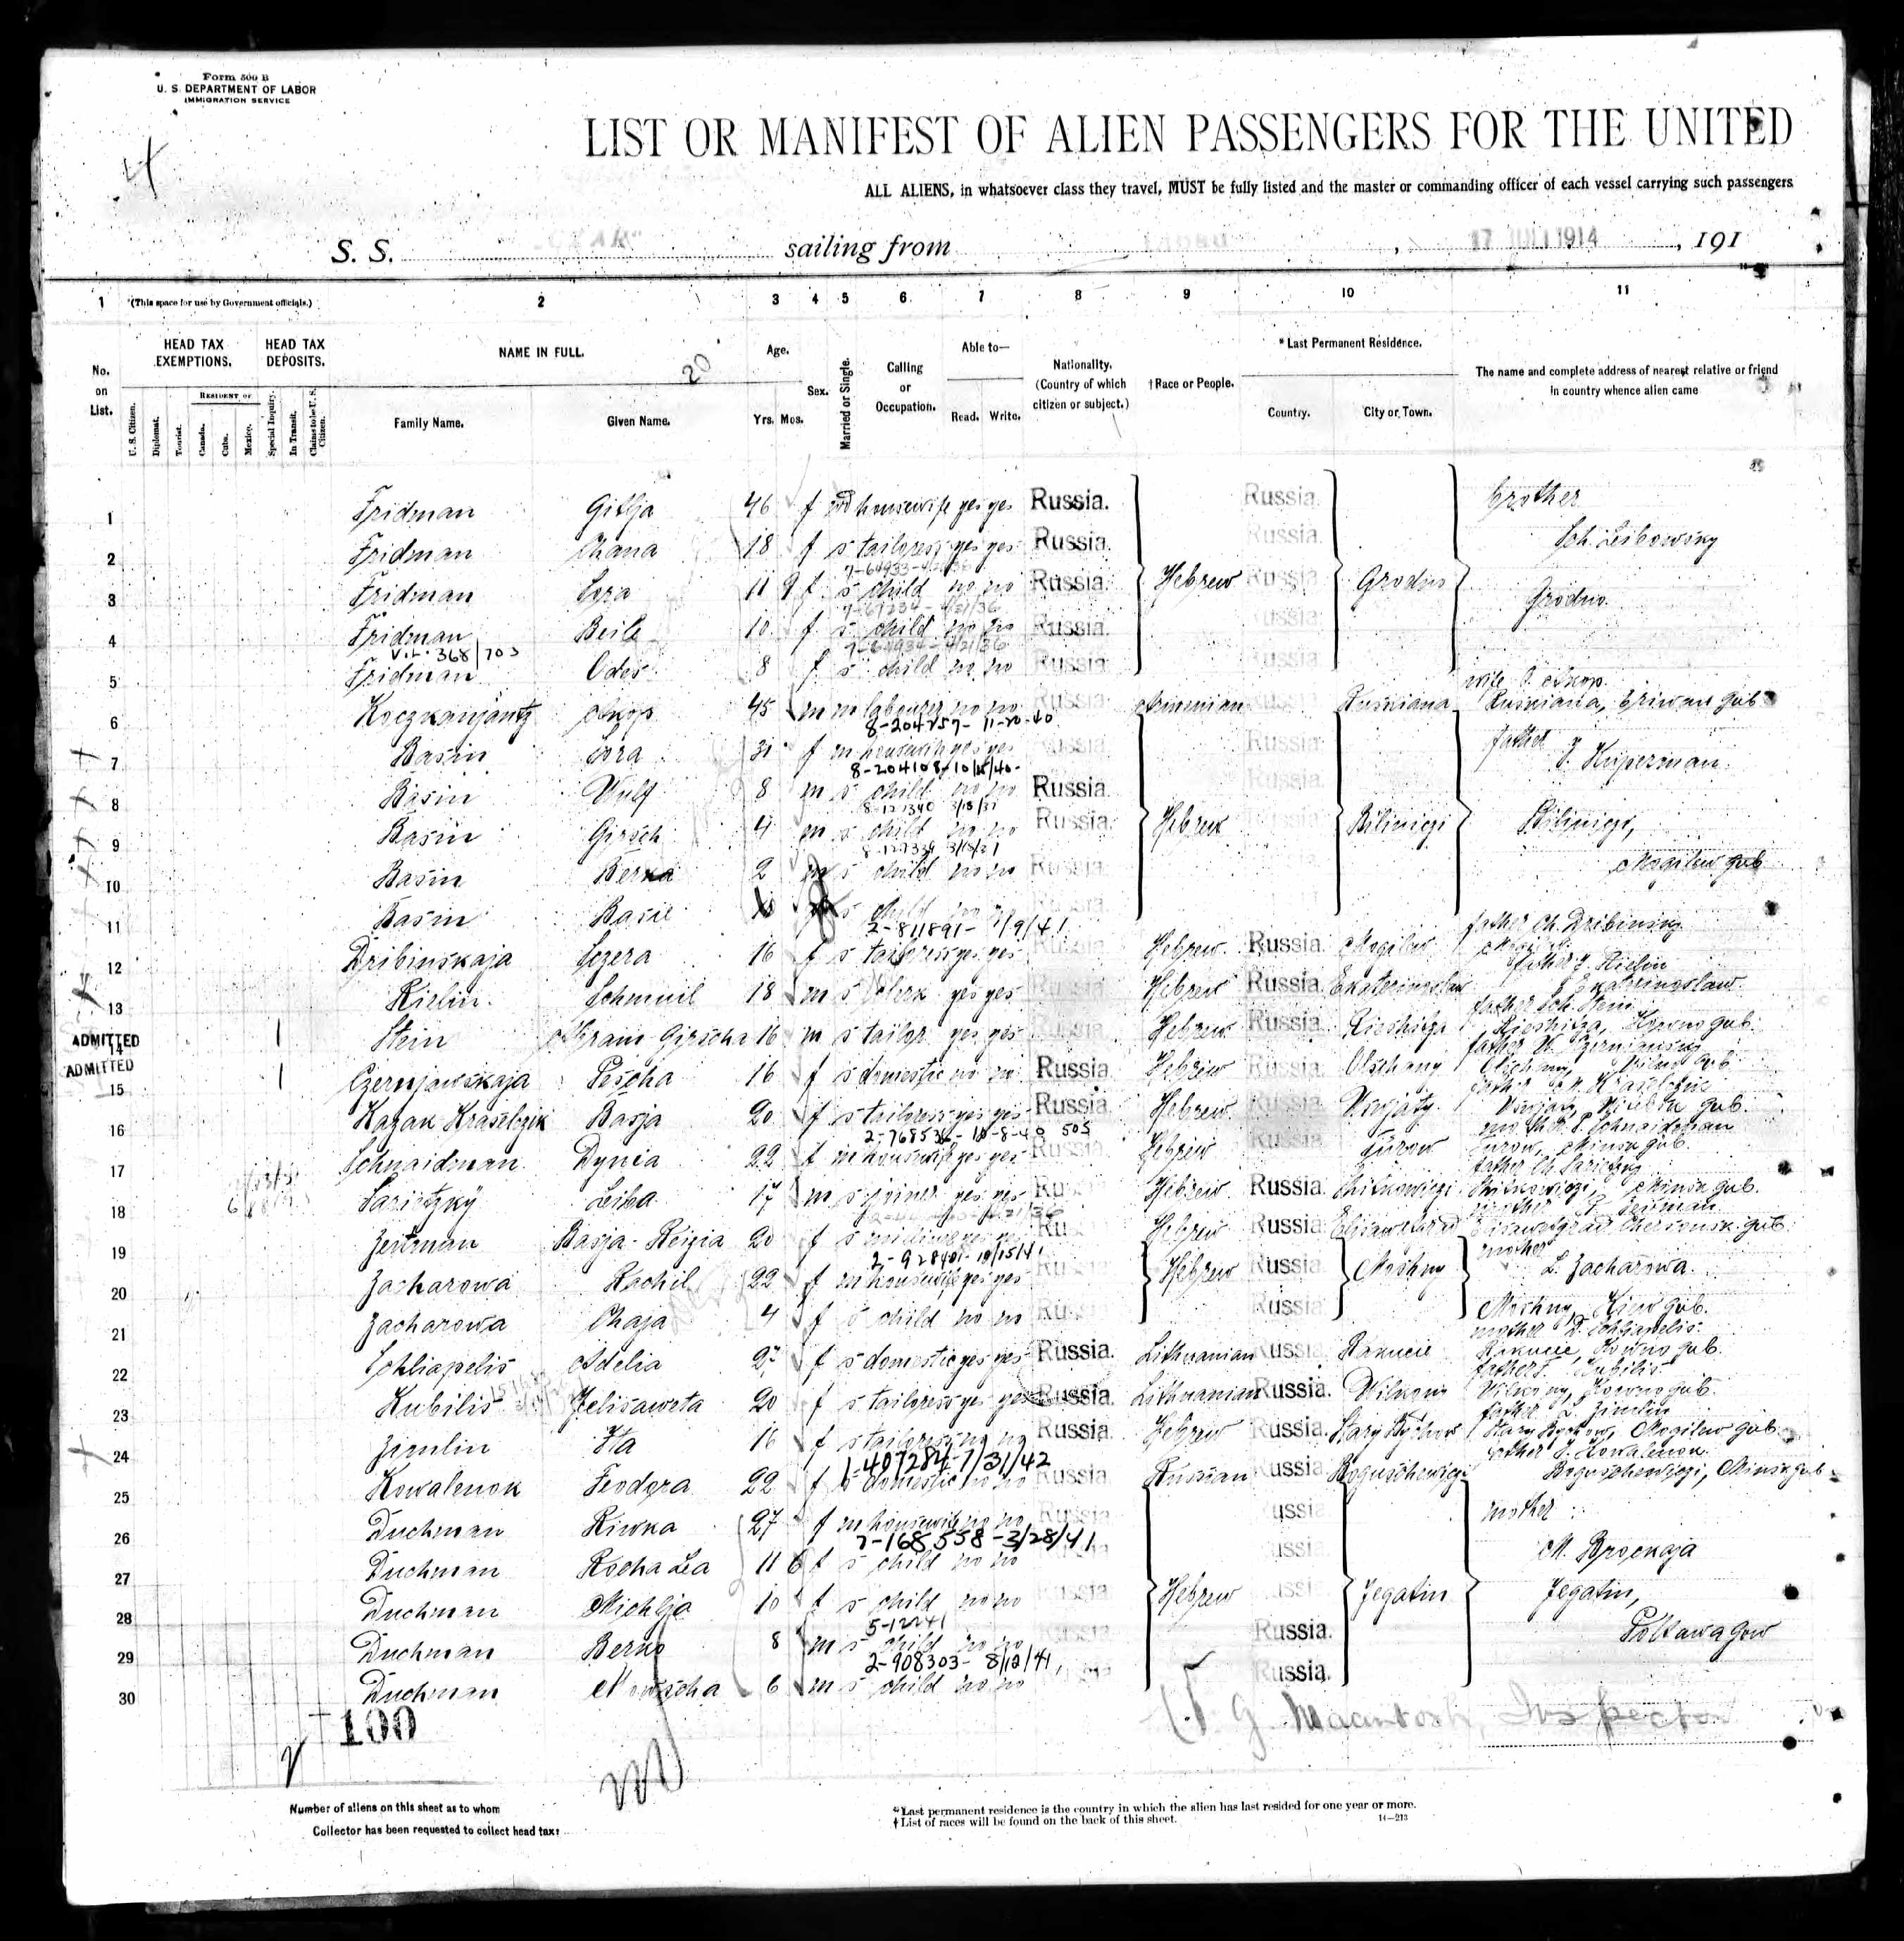 Form 500 B
U. S. DEPARTMENT OF LABOR
IMMIGRATION SERVICE
4
LIST OR MANIFEST OF ALIEN PASSENGERS FOR THE UNITED
ALL ALIENS, in whatsoever class they travel, MUST be fully listed and the master or commanding officer of each vessel carrying such passengers
S. S. "CZAR" sailing from LIBAU, 17 JULI 1914, 191
1 (This space for use by Government officials.) 2 3 4 5 6 7 8 9 10 11
No. on List. HEAD TAX EXEMPTIONS. HEAD TAX DEPOSITS. NAME IN FULL. 20 Age. Sex. Married or Single. Calling or Occupation. Able to— Nationality. (Country of which citizen or subject.) †Race or People. *Last Permanent Residence. The name and complete address of nearest relative or friend in country whence alien came
U. S. Citizen. Diplomat. Tourist. RESIDENT OF Canada. Cuba. Mexico. Special Inquiry. In Transit. Claims to be U. S. Citizen. Family Name. Given Name. Yrs. Mos. Read. Write. Country. City or Town.
1 Fridman Gitlja 46 f wd housewife yes yes Russia. Russia. brother
2 Fridman Chana 18 f s tailoress yes yes Russia. Russia. Sch. Leibowsky
3 Fridman Sora 11 9 f s child no no Russia. Hebrew Russia Grodno Grodno.
4 Fridman Beile 10 f s child no no Russia. Russia
V.L. 368/703
5 Fridman 8 f s child no no Russia Russia
6 Akop 45 m m labourer no no Russia Armenian Russiana wife Akop. Russiana, Eriwan gub
8-204757- 11-20-40
7 Basin Sora 31 f m housewife yes yes Russia Russia father Kuperman.
8-204108-10/15/40-
8 Basin Wulf 8 m s child no no Russia. Russia
9 Basin Girsch 4 m s child no no Russia. Hebrew Russia Biliniczi Biliniczi,
10 Basin 2 m s child no no Russia Mogilew gub
11 Basin Basie s child no no Russia
2-811891- 1/9/41
12 Dribinskaja 16 f s tailoress yes yes Russia Hebrew Russia. Mogilew father Ch. Dribinsky
13 Rielin Schmuil 18 m s clerk yes yes Russia Hebrew Russia. Ekaterinoslaw father Rielin Ekaterinoslaw
ADMITTED 14 Stein Abram Girscha 16 m s tailor yes yes Russia Hebrew Russia. Rieshitza father Sch. Stein Rieshitza, Kowno gub.
ADMITTED 15 Czernjawskaja Pescha 16 f s domestic no no Russia. Hebrew Russia Olschany father Olschany, Wilna gub
16 Kazan Kraselczik Basja 20 f s tailoress yes yes Russia. Hebrew Russia Usvjaty Witebsk gub.
2-768536- 10-8-40 505
17 Schnaidman Dynia 22 f m housewife yes yes Russia Hebrew Russia Turow Schnaidman Turow, Minsk gub.
18 Sarietzky Leiba 17 m s joiner yes yes Hebrew Russia. Zitkowiczi father Ch. Sarietzky Zitkowiczi, Minsk gub.
19 Zeitman Basja-Reizia 20 f s yes yes Hebrew Russia Elisawetgrad mother Elisawetgrad Chersonsk. gub.
2-928401- 10/15/41
20 Zacharowa Rachil 22 f m housewife yes yes Hebrew Russia Moshny mother L. Zacharowa.
21 Zacharowa Chaja 4 f s child no no Russia Moshny, Kiew gub.
22 Schliapelis Adelia 27 f s domestic yes yes Russia. Lithuanian Russia Rakucie mother Schliapelis. Rakucie, Kowno gub.
23 Kubilis Jelisaweta 20 f s tailoress yes yes Russia. Lithuanian Russia. father Kubilis Kowno gub.
24 Zimlin Ita 16 f s tailoress no no Russia. Hebrew Russia. Stary Bychow father L. Zimlin Stary Bychow, Mogilew gub.
1-407284-7/31/42
25 Kowalenok Feodora 22 f s domestic no no Russia Russian Russia Boguschewiczi Kowalenok Boguschewiczi, Minsk gub.
26 Duchman Riwka 27 f m housewife no no Russia Russia mother
7-168558-3/28/41
27 Duchman Rocha Lea 11 6 f s child no no Russia M. Brsckaja
28 Duchman Michlja 10 f s child no no Russia Hebrew Russia Jegatin Jegatin,
5-12241
29 Duchman Berko 8 m s child no no Russia. Poltawa gow
2-908303- 8/12/41
30 Duchman 6 m s child no no Russia.
100 Macintosh, Inspector
Number of aliens on this sheet as to whom
Collector has been requested to collect head tax:
*Last permanent residence is the country in which the alien has last resided for one year or more.
†List of races will be found on the back of this sheet. 14—213